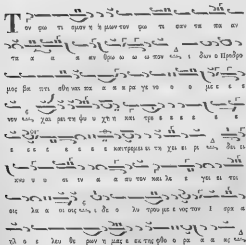 Τον φω τι σμον η μων τον φω τι σαν τα πα αν
τα α α α αν θρω ω ω ω πον ι δων ο Προδρο
μος βα πτι σθη ναι πα α α ρα γε νο ο με ε ε
νον χαι ρει τη ψυ χη η και τρε ε ε ε ε
ε ε και τρε μει ει τη χει ει ρι δει ει
κνυ υ σι ιν α α αυ τον και λε ε γει ει τοι
οις λα α οι οις ι δε ο λυ τρου με ε νος τον Ι σρα α
ηλ ο ε λευ θε ρων η μας ε εκ της φθο ρα α α ας